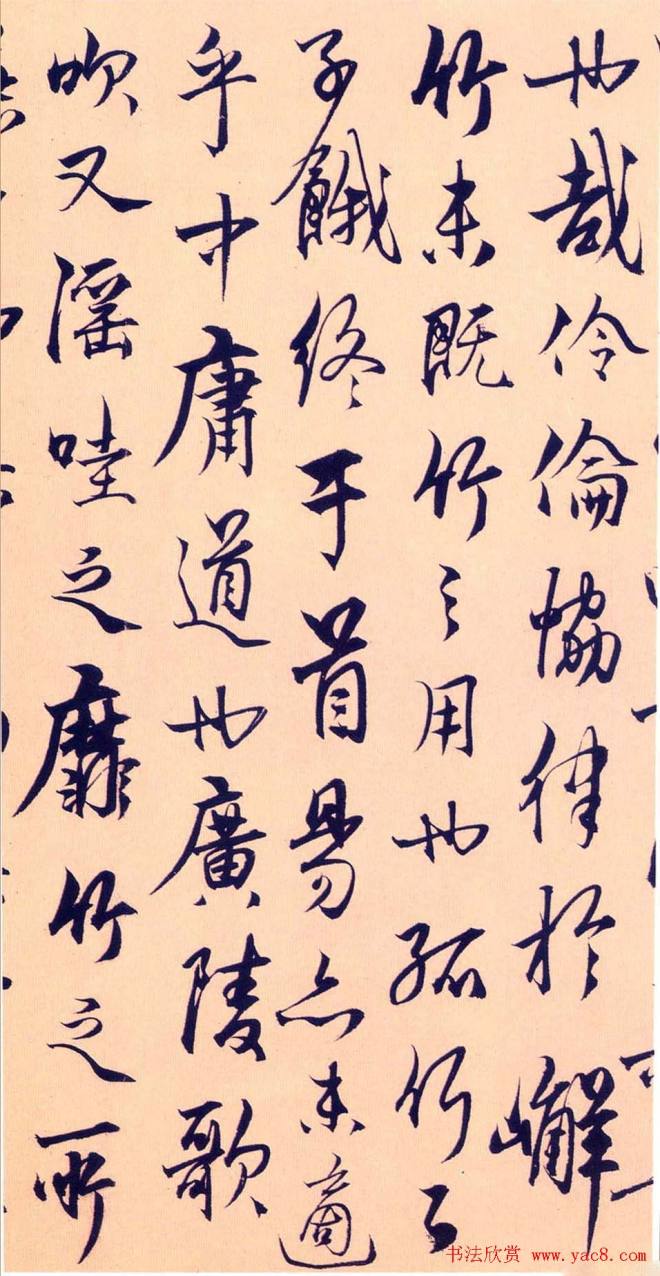 也哉伶倫協律於嶰
竹未既竹之用也孤竹之
子餓終于首昜亦未適
乎中庸道也廣陵歌
吹又淫哇之靡竹之所
书法欣赏 www.yac8.com